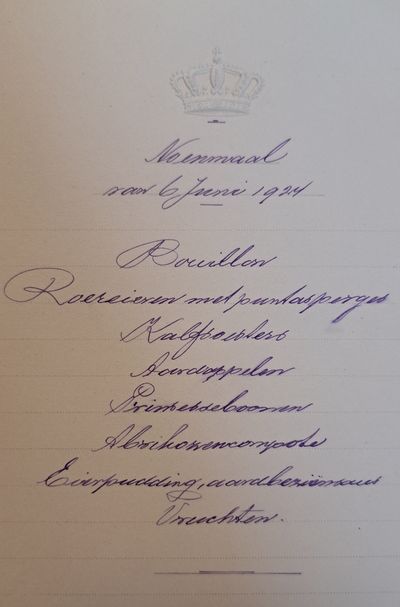 Noenmaal
van 6 Juni 1924
Bouillon
Roereieren met puntasperges
Kalfsoesters
Aardappelen
Prinsesseboonen
Abrikozencompote
Eierpudding, aardbeziënsaus
Vruchten.